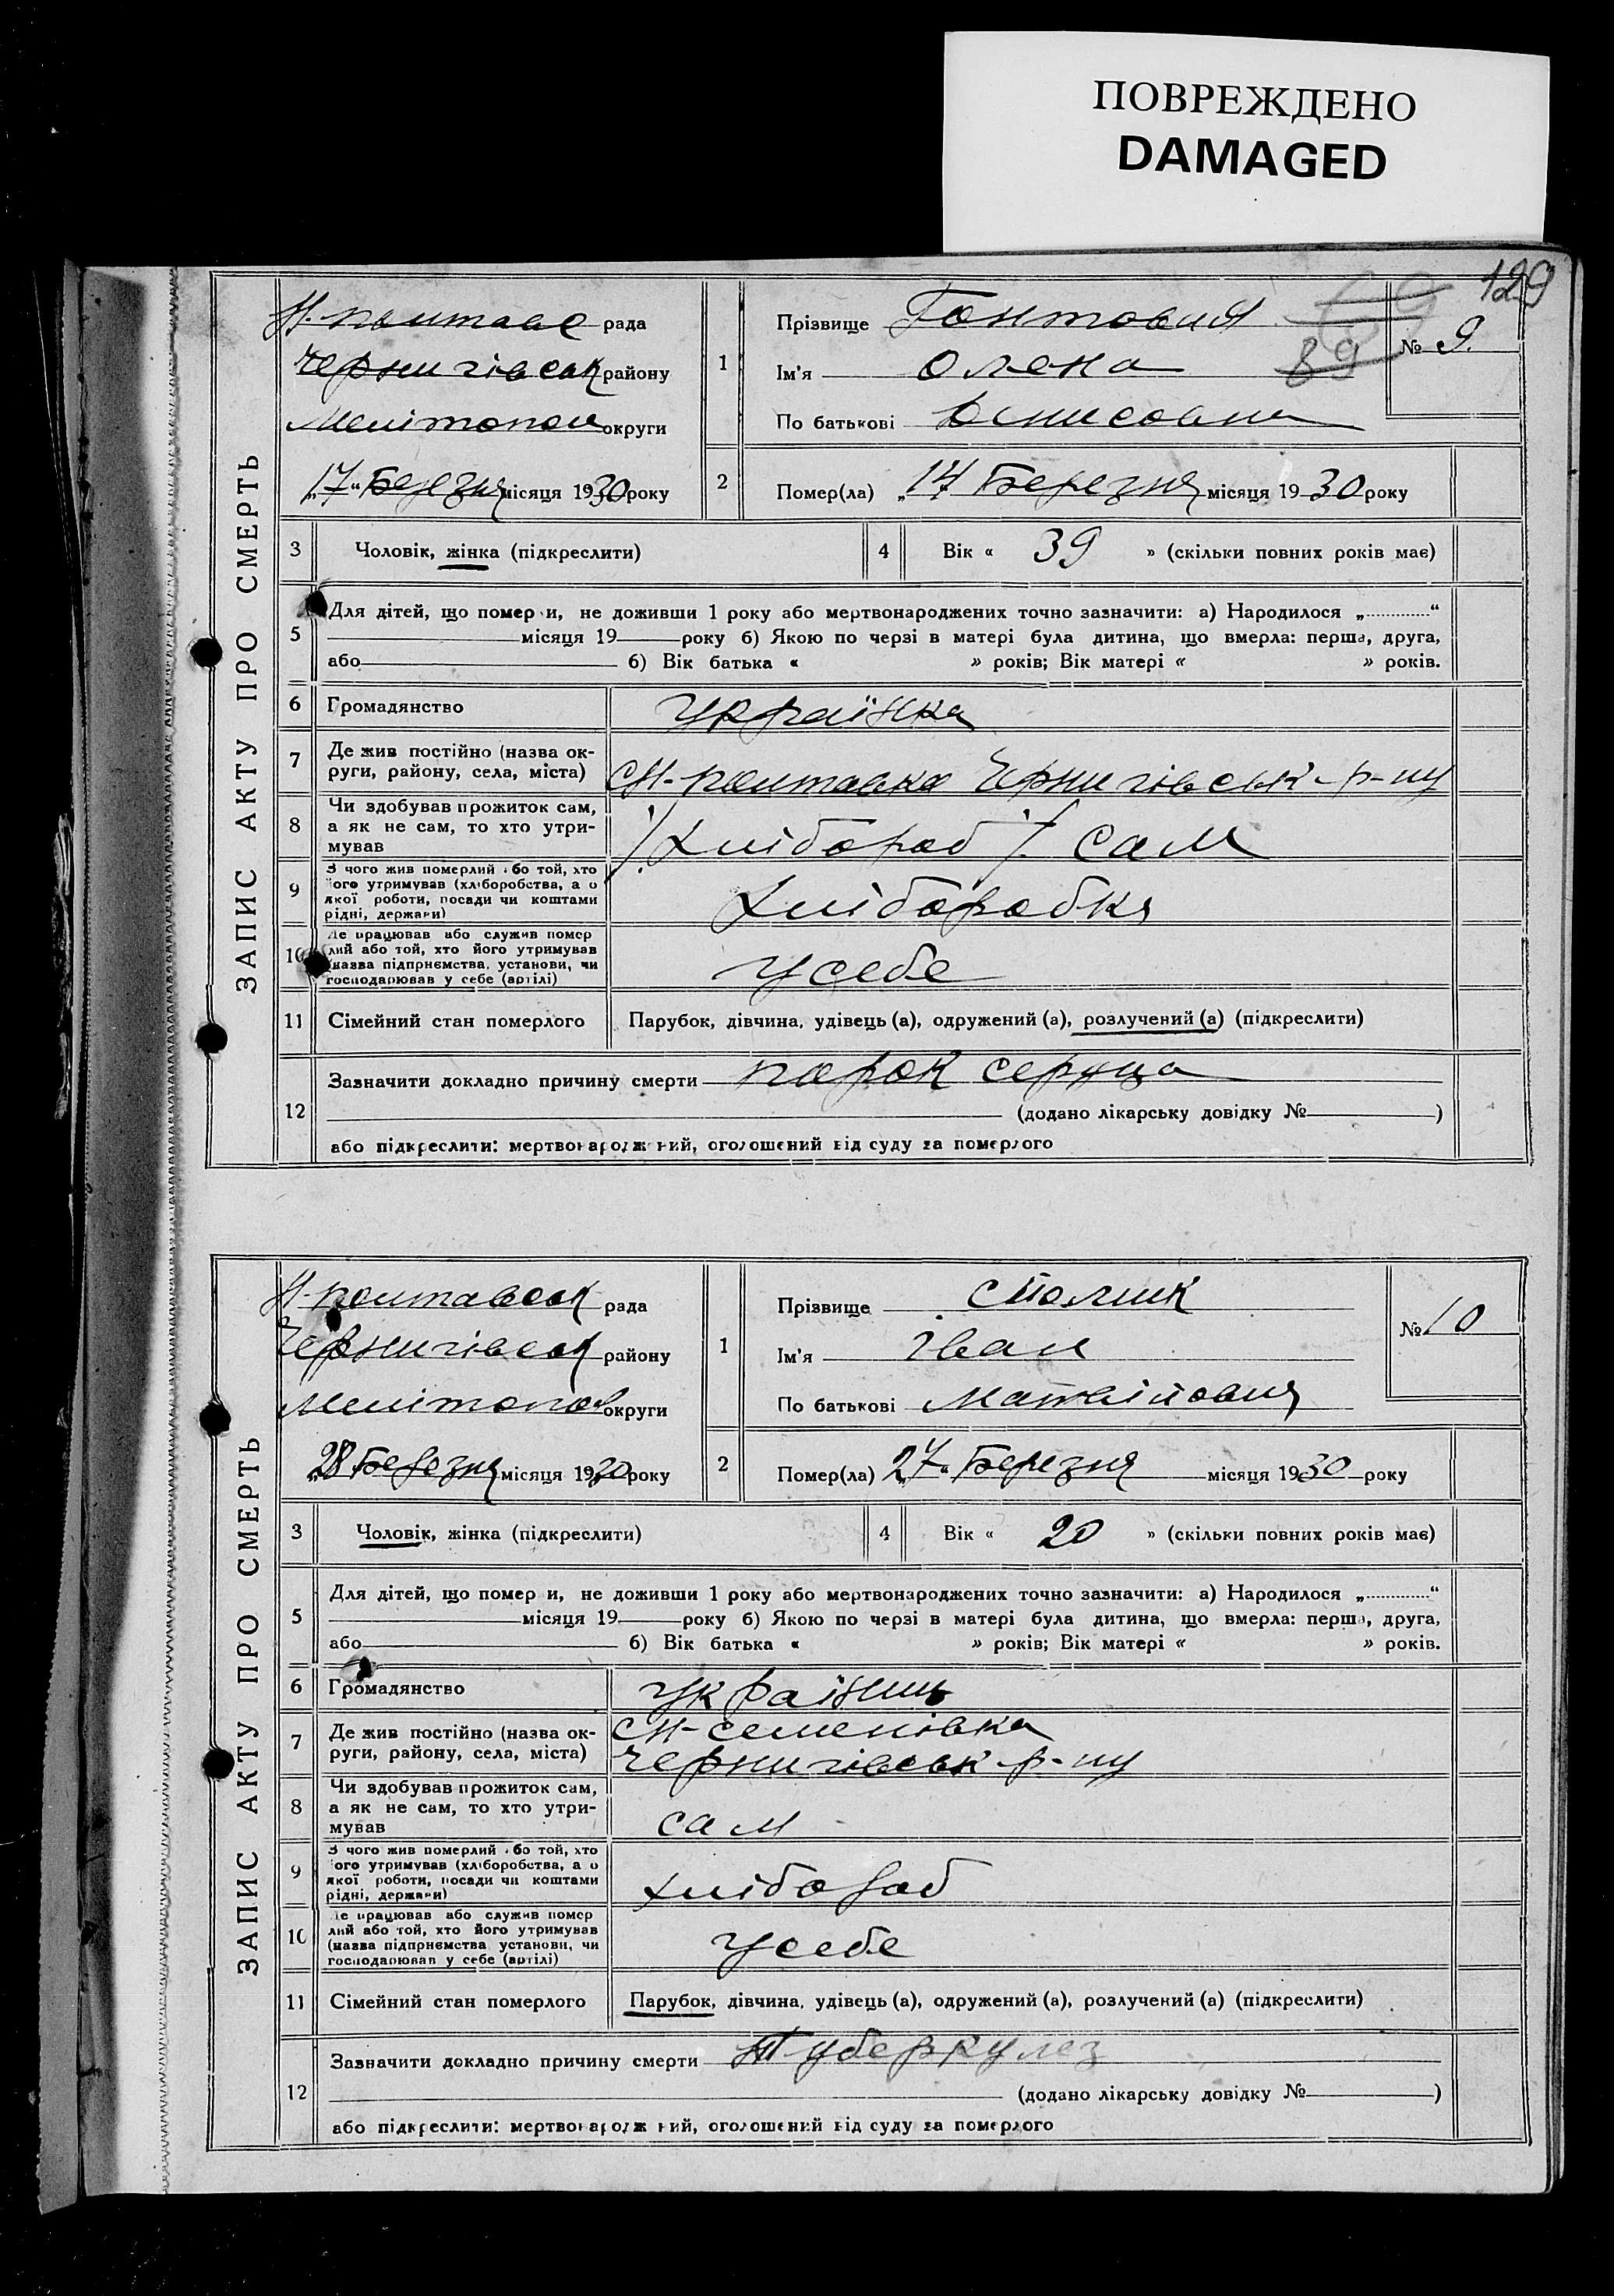 ПОВРЕЖДЕНО
DAMAGED
129
89
ЗАПИС АКТУ ПРО СМЕРТЬ
Н-полтавс рада
Чернигівськ району
Мелітопол округи
„17“ Березня місяця 1930 року
1
Прізвище Гонтовия
Ім'я Олена
По батькові Денисовна
№ 9.
2
Помер(ла) „14“ Березня місяця 1930 року
3 Чоловік, жінка (підкреслити)
4 Вік « 39 » (скільки повних років має)
5
Для дітей, що помер и, не доживши 1 року або мертвонароджених точно зазначити: а) Народилося „ “
місяця 19 року б) Якою по черзі в матері була дитина, що вмерла: перша, друга,
або б) Вік батька « » років; Вік матері « » років.
6 Громадянство Українка
7 Де жив постійно (назва ок-
руги, району, села, міста) СН-полтавка Чернигівськ р-ну
8 Чи здобував прожиток сам,
а як не сам, то хто утри-
мував
/Хлібороб/. сам
9 З чого жив померлий бо той, хто
ого утримував (хліборобства, а о
якої роботи, посади чи коштами
рідні, держави)
Хліборобка
10 Де працював або служив помер
лий або той, хто його утримував
(назва підприємства, установи, чи
господарював у себе (артілі)
У себе
11 Сімейний стан померлого Парубок, дівчина, удівець (а), одружений (а), розлучений (а) (підкреслити)
12
Зазначити докладно причину смерти порок сердца
(додано лікарську довідку № )
або підкреслити: мертвонародж ний, оголошений від суду за померлого
ЗАПИС АКТУ ПРО СМЕРТЬ
Н-полтавськ рада
Чернигівськ району
Мелітопол округи
„28 Березня місяця 1930 року
1
Прізвище Столик
Ім'я Іван
По батькові Матвійович
№ 10
2
Помер(ла) „27“ Березня місяця 1930 року
3 Чоловік, жінка (підкреслити)
4 Вік « 20 » (скільки повних років має)
5
Для дітей, що помер и, не доживши 1 року або мертвонароджених точно зазначити: а) Народилося „ “
місяця 19 року б) Якою по черзі в матері була дитина, що вмерла: перша, друга,
або б) Вік батька « » років; Вік матері « » років.
6 Громадянство Українць
7 Де жив постійно (назва ок-
руги, району, села, міста)
СН-семенівка
Чернигівськ р-ну
8 Чи здобував прожиток сам,
а як не сам, то хто утри-
мував
сам
9 З чого жив померлий бо той, хто
ого утримував (хліборобства, а о
якої роботи, посади чи коштами
рідні, держави)
хлібороб
10 Де працював або служив помер
лий або той, хто його утримував
(назва підприємства установи, чи
господарював у себе (артілі)
У себе
11 Сімейний стан померлого Парубок, дівчина, удівець (а), одружений (а), розлучений (а) (підкреслити)
12
Зазначити докладно причину смерти Туберкулез
(додано лікарську довідку № )
або підкреслити: мертвонародж ний, оголошений від суду за померлого